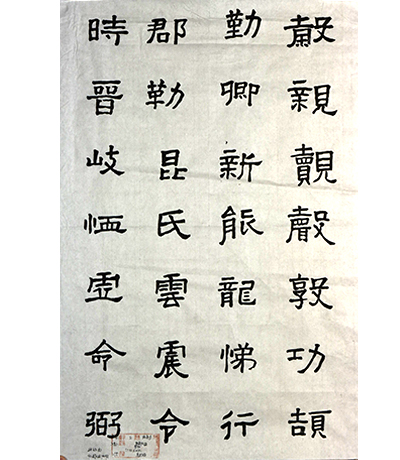 親覿敦功頡
勤卿新能龍悌行
郡勒昆氏雲震令
時晉岐命弼